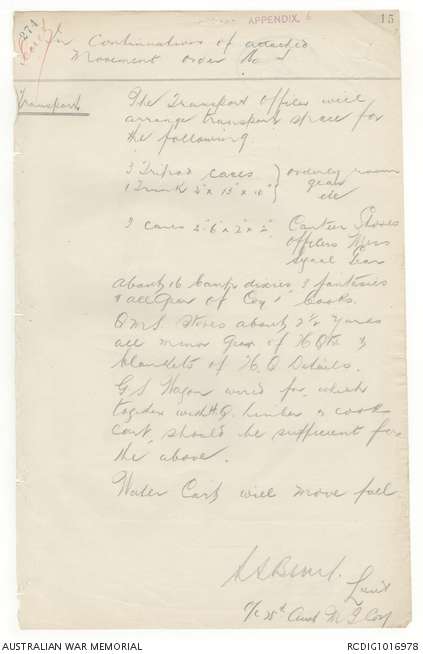 APPENDIX. 6
15
274
In Continuation of attached
Movement Order No 1
Transport
The Transport Officer will
arrange transport space for
the following
3 Tripod cases } orderly room
1 Trunk x 13" x 10" gear
etc
3 cases 2'6" x 2' x 2' Canteen Stores
Officers Mess
Signal Gear
About 16 Camp dixies, 3 fantasies
& all gear of Coy's Cooks.
Q.M.S. Stores about 2½ yards
all minor gear of H Qrs &
blankets of H.Q Details.
G.S Wagon wired for, which
together with H.Q. limber & cook
cart, should be sufficient for
the above.
Water Cart will move full
Lieut
O/c 25th Aust M G Coy
AUSTRALIAN WAR MEMORIAL
RCDIG1016978